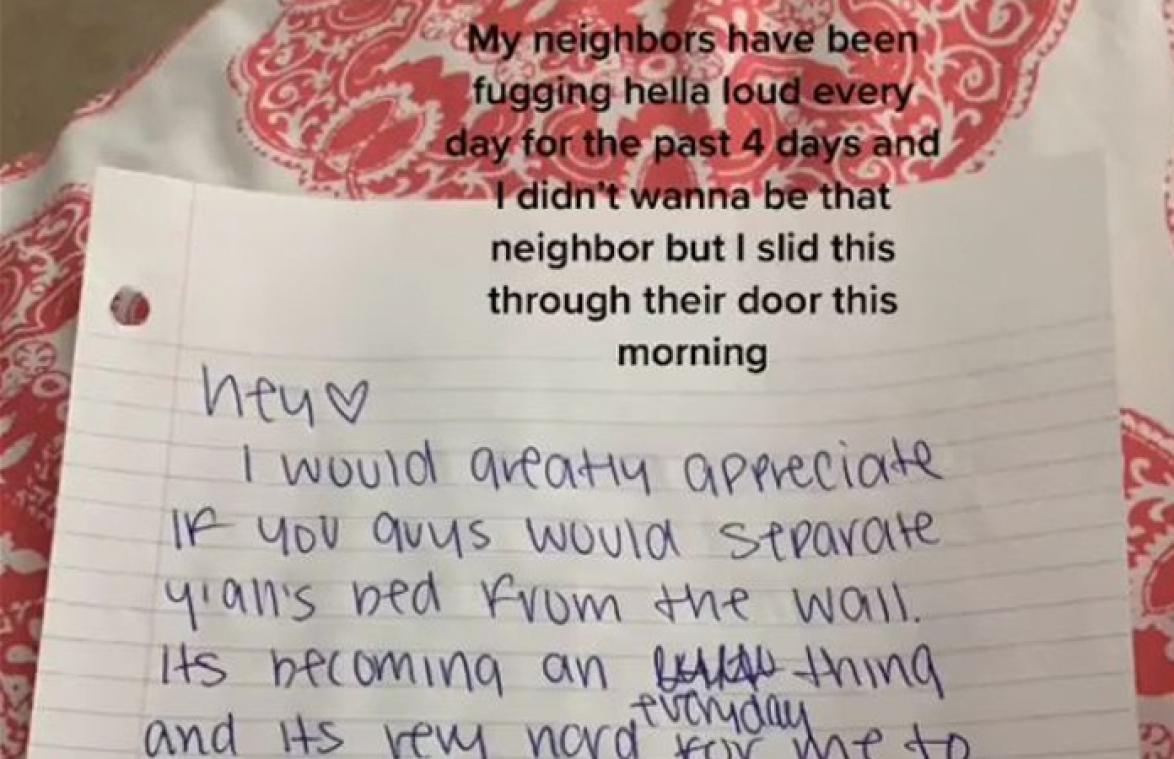 My neighbors have been
fugging hella loud every
day for the past 4 days and
I didn't wanna be that
neighbor but I slid this
through their door this
morning
hey♡
I would greatly appreciate
If you guys would separate
y'all's bed from the wall.
Its becoming an thing
everyday
and its very hard for me to